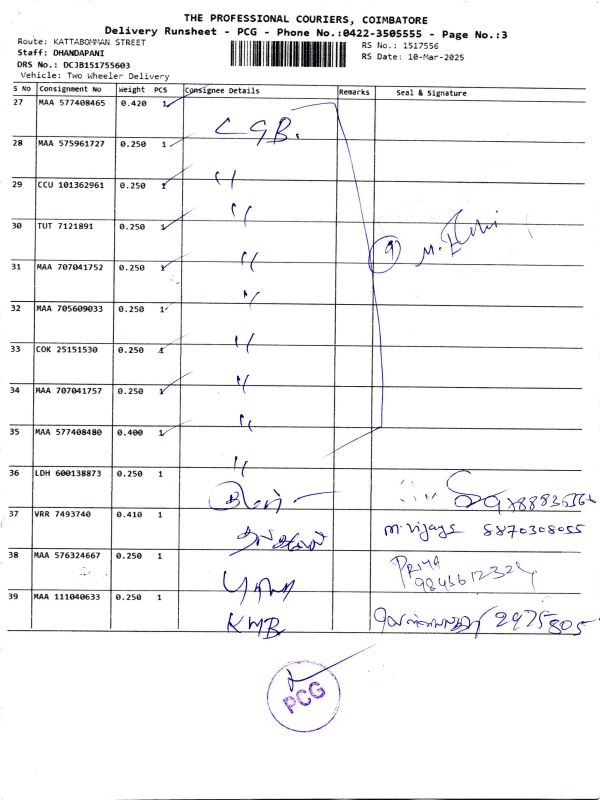 THE PROFESSIONAL COURIERS, COIMBATORE
Delivery Runsheet - PCG - Phone No.:0422-3505555 - Page No.:3
Route: KATTABOMMAN STREET
RS No.: 1517556
Staff: DHANDAPANI
RS Date: 10-Mar-2025
DRS No.: DCJB151755603
Vehicle: Two Wheeler Delivery
S No Consignment No Weight PCS Consignee Details Remarks Seal & Signature
27 MAA 577408465 0.420 1
CGB.
28 MAA 575961727 0.250 1
"
29 CCU 101362961 0.250 1
"
30 TUT 7121891 0.250 1
"
9
31 MAA 707041752 0.250 1
"
32 MAA 705609033 0.250 1
"
33 COK 25151530 0.250 1
"
34 MAA 707041757 0.250 1
"
35 MAA 577408480 0.400 1
"
36 LDH 600138873 0.250 1
37 VRR 7493740 0.410 1
M. Vijaya 8870308055
38 MAA 576324667 0.250 1
PRIYA
39 MAA 111040633 0.250 1
KMB 2475805
PCG